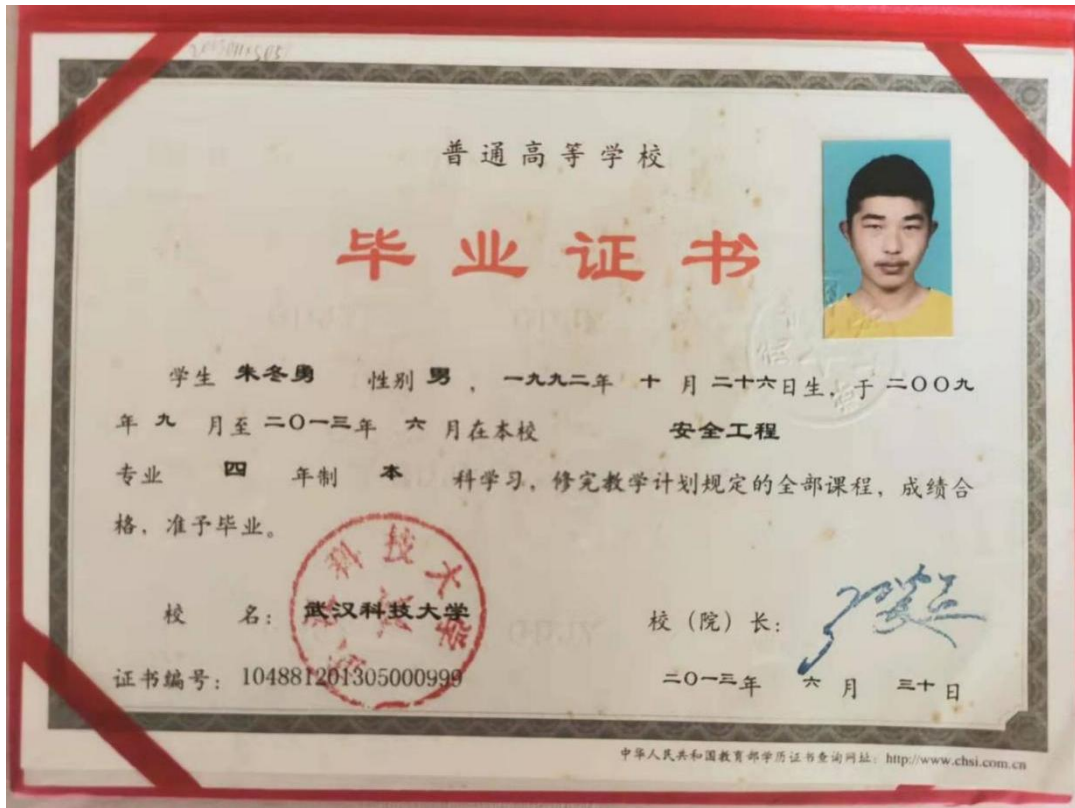 普通高等学校
毕业证书
学生 朱冬勇 性别 男 ，一九九二年 十 月二十六日生，于二〇〇九
年 九 月至二〇一三年 六 月在本校 安全工程
专业 四 年制 本 科学习，修完教学计划规定的全部课程，成绩合
格，准予毕业。
校 名：武汉科技大学
校（院）长：
证书编号：104881201305000999
二〇一三年 六 月 三十日
中华人民共和国教育部学历证书查询网址：http://www.chsi.com.cn